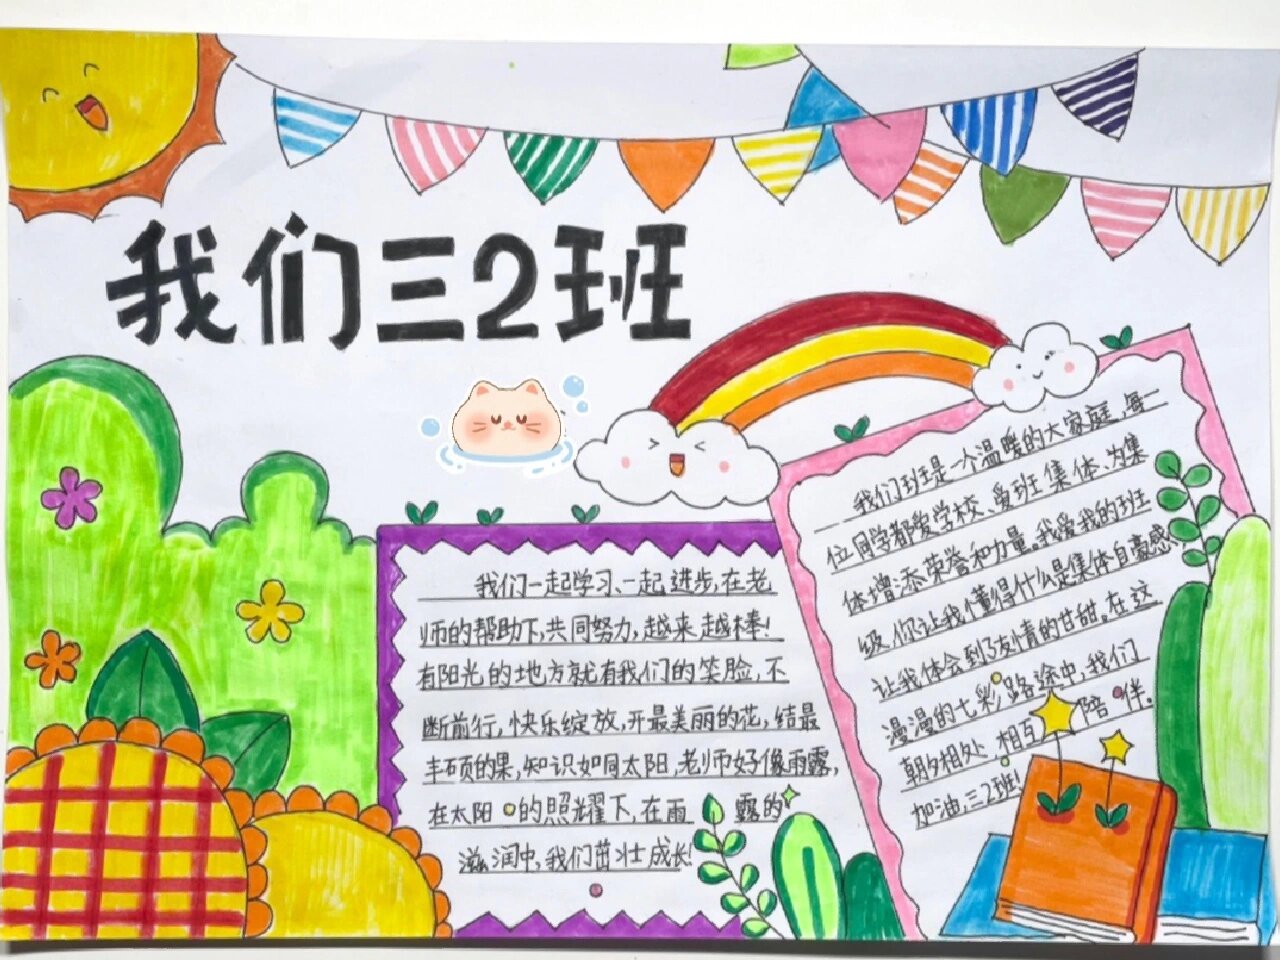 我们三2班
我们一起学习、一起进步,在老
师的帮助下,共同努力,越来越棒!
有阳光的地方就有我们的笑脸,不
断前行,快乐绽放,开最美丽的花,结最
丰硕的果,知识如同太阳,老师好像雨露,
在太阳的照耀下,在雨露的
滋润中,我们茁壮成长!
我们班是一个温暖的大家庭,每一
位同学都爱学校、爱班集体、为集
体增添荣誉和力量。我爱我的班
级,你让我懂得什么是集体自豪感,
让我体会到了友情的甘甜。在这
漫漫的七彩路途中,我们
朝夕相处 相互陪伴。
加油,三2班!